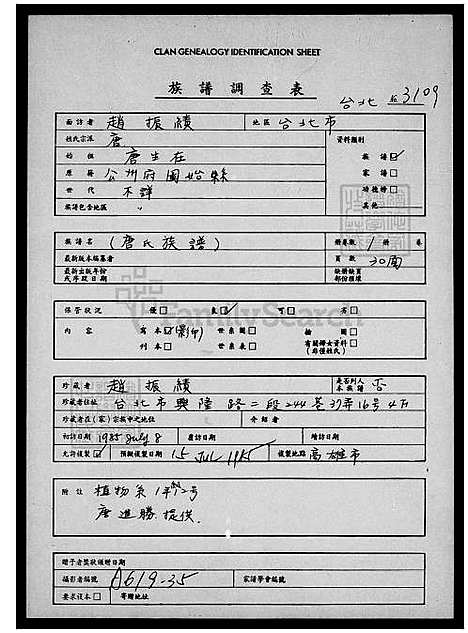 CLAN GENEALOGY IDENTIFICATION SHEET
族譜調查表
台北 3109
面訪者 趙振績 地區 台北市
姓氏宗派 唐 資料類別
始祖 唐生在 族譜☑
原籍 公州府固始縣 家譜□
世代 不詳 功德榜□
族譜包含地區 〃 其他□
族譜名 (唐氏族譜) 冊卷數 1 冊 卷
最新版本編纂者 頁數 30面
最新出版年份或序跋日期 缺冊缺頁部份種壞
保管狀況 優□ 良☑ 可□ 劣□
內容 寫本☑(影印) 世系圖□ 繪圖□
刊本□ 世系表□ 有關婦女資料□(非僅姓氏)
珍藏者 趙振績 是否列入本族譜 否
珍藏者住址 台北市興隆路二段244巷37弄16号4F
珍藏者在(家)宗族中之地位 介紹者
初訪日期 1985 July 8 應訪日期 續訪日期
允許複製☑ 預擬複製日期 15 Jul 1985 複製地點 高雄市
附註 植物系
唐進勝提供.
贈予者獎狀頒贈日期
攝影者編號 A619-35 家譜學會編號
要求復本□ 寄贈地址
FamilySearch